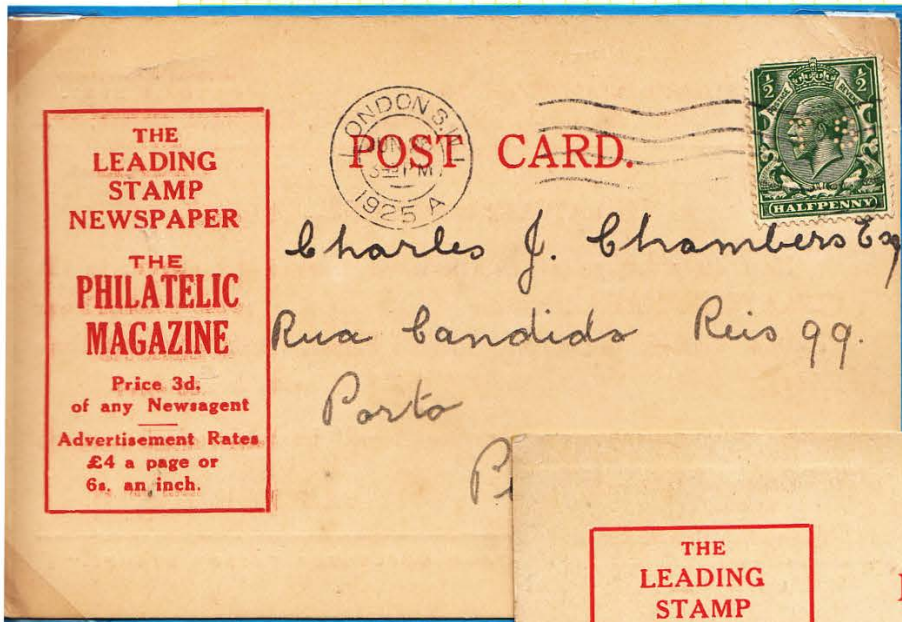 THE
LEADING
STAMP
NEWSPAPER
THE
PHILATELIC
MAGAZINE
Price 3d.
of any Newsagent
Advertisement Rates
£4 a page or
6s. an inch.
POST CARD.
LONDON S.W.1
1925 A
½ ½
HALFPENNY
Charles J. Chambers Esq
Rua Candido Reis 99.
Porto
THE
LEADING
STAMP